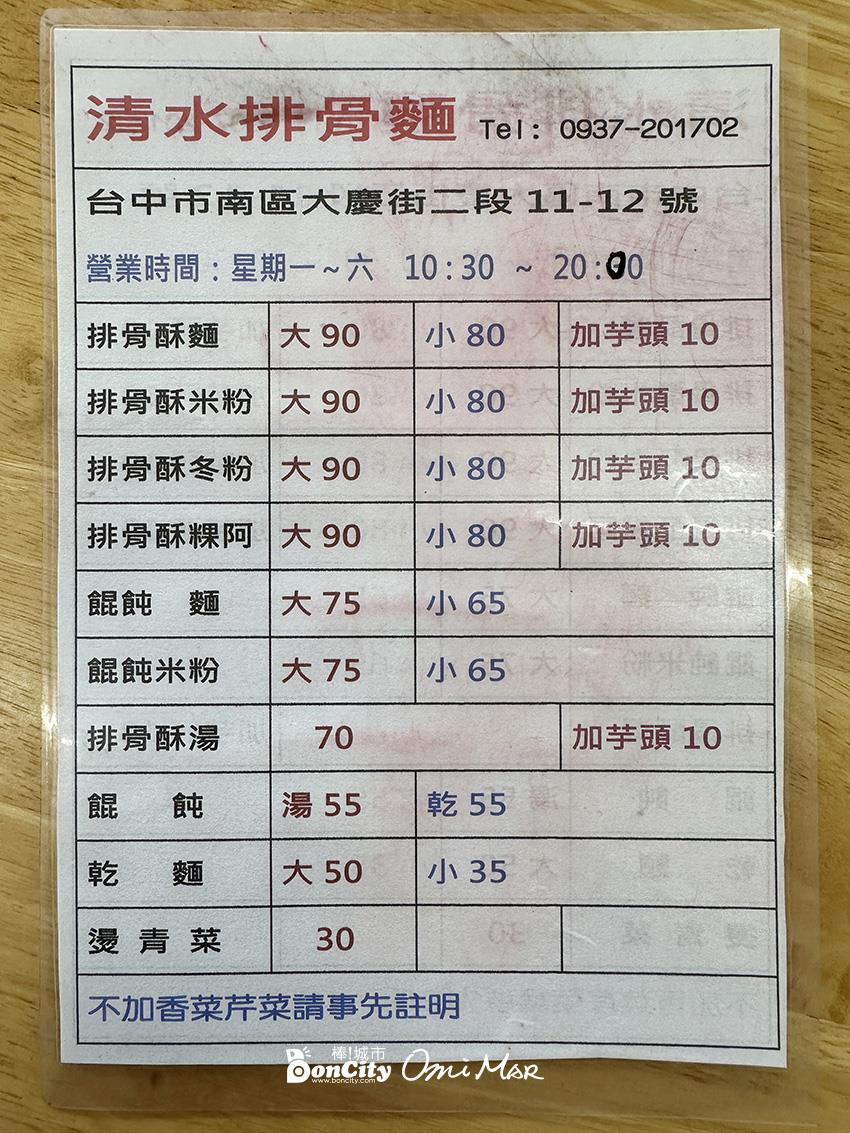 清水排骨麵 Tel: 0937-201702
台中市南區大慶街二段 11-12 號
營業時間：星期一～六 10:30 ~ 20:00
排骨酥麵 大 90 小 80 加芋頭 10
排骨酥米粉 大 90 小 80 加芋頭 10
排骨酥冬粉 大 90 小 80 加芋頭 10
排骨酥粿阿 大 90 小 80 加芋頭 10
餛飩 麵 大 75 小 65
餛飩米粉 大 75 小 65
排骨酥湯 70 加芋頭 10
餛 飩 湯 55 乾 55
乾 麵 大 50 小 35
燙 青 菜 30
不加香菜芹菜請事先註明
棒!城市
BonCity Omi Mar
www.boncity.com